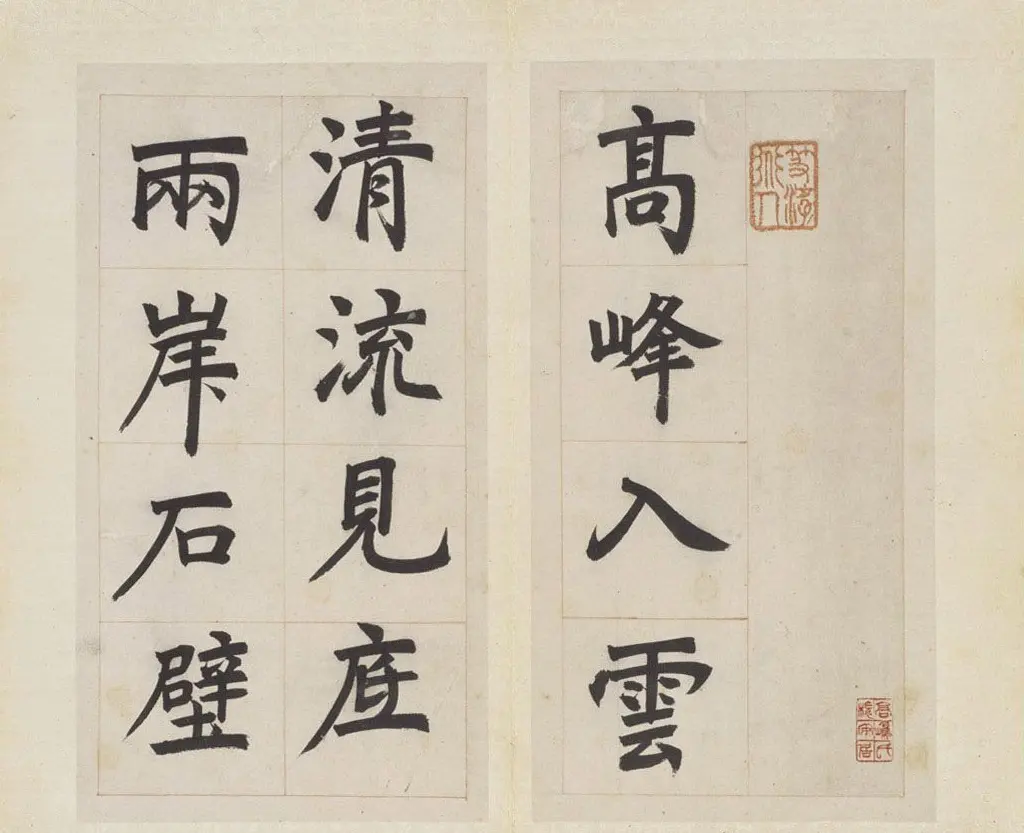 髙峰入雲
清流見底
兩岸石壁